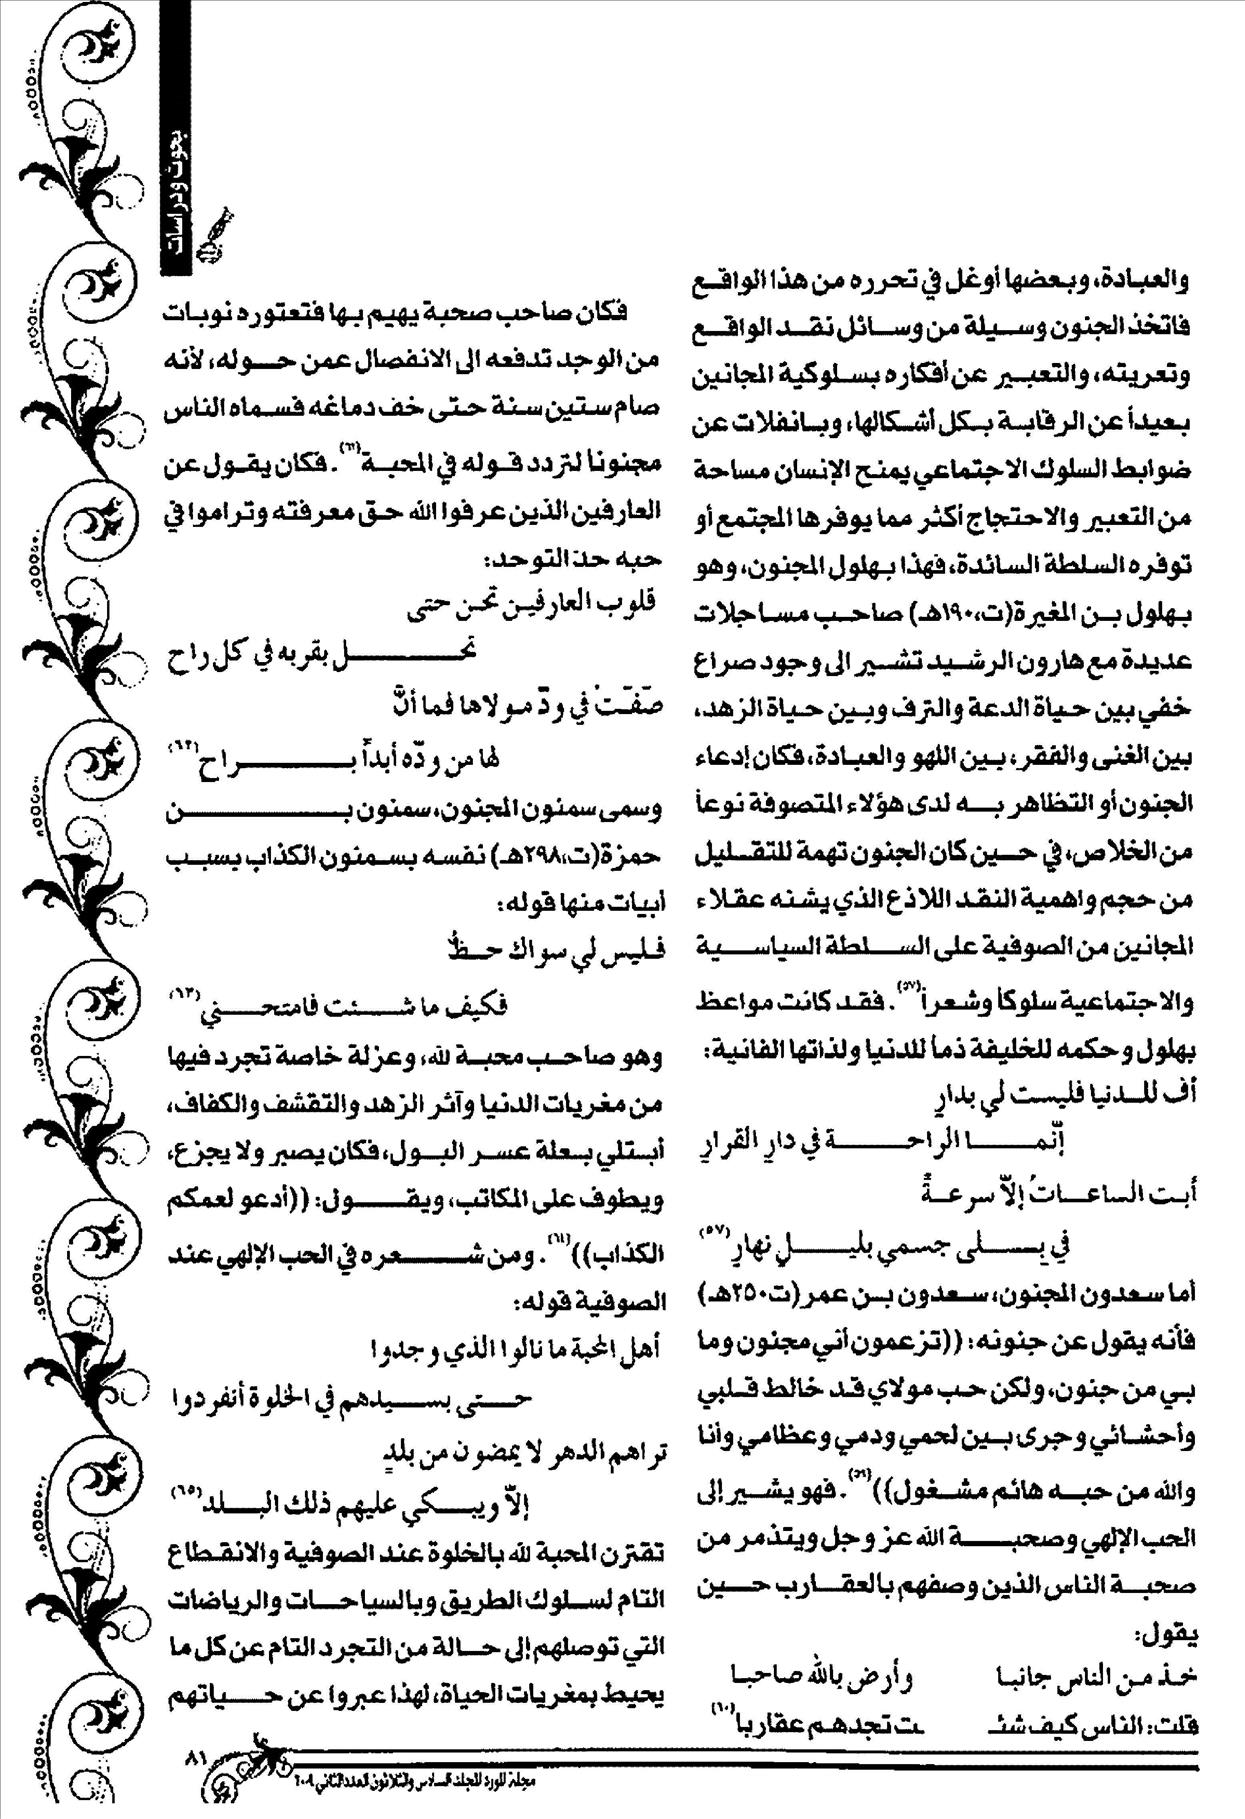 بحوث ودراسات
والعبادة، وبعضها أوغل في تحرره من هذا الواقع
فاتخذ الجنون وسيلة من وسائل نقد الواقع
وتعريته، والتعبير عن أفكاره بسلوكية المجانين
بعيداً عن الرقابة بكل أشكالها، وبانفلات عن
ضوابط السلوك الاجتماعي يمنح الإنسان مساحة
من التعبير والاحتجاج أكثر مما يوفرها المجتمع أو
توفره السلطة السائدة، فهذا بهلول المجنون، وهو
بهلول بن المغيرة(ت،١٩٠هـ) صاحب مساجلات
عديدة مع هارون الرشيد تشير الى وجود صراع
خفي بين حياة الدعة والترف وبين حياة الزهد،
بين الغنى والفقر، بين اللهو والعبادة، فكان إدعاء
الجنون أو التظاهر به لدى هؤلاء المتصوفة نوعاً
من الخلاص، في حين كان الجنون تهمة للتقليل
من حجم واهمية النقد اللاذع الذي يشنه عقلاء
المجانين من الصوفية على السلطة السياسية
والاجتماعية سلوكاً وشعراً(٥٧). فقد كانت مواعظ
بهلول وحكمه للخليفة ذماً للدنيا ولذاتها الفانية:
أف للدنيا فليست لي بدارٍ
إنّما الراحة في دارِ القرارِ
أبت الساعاتُ إلاّ سرعةً
في بلى جسمي بليل نهارِ(٥٧)
أما سعدون المجنون، سعدون بن عمر(ت٢٥٠هـ)
فأنه يقول عن جنونه: ((تزعمون أني مجنون وما
بي من جنون، ولكن حب مولاي قد خالط قلبي
وأحشائي وجرى بين لحمي ودمي وعظامي وأنا
والله من حبه هائم مشغول))(٥٩). فهو يشير إلى
الحب الإلهي وصحبة الله عز وجل ويتذمر من
صحبة الناس الذين وصفهم بالعقارب حين
يقول:
خذ من الناس جانبا وأرض بالله صاحبا
قلت: الناس كيف شئت تجدهم عقاربا(٦٠)
فكان صاحب صحبة يهيم بها فتعتوره نوبات
من الوجد تدفعه الى الانفصال عمن حوله، لأنه
صام ستين سنة حتى خف دماغه فسماه الناس
مجنوناً لتردد قوله في المحبة(٦١). فكان يقول عن
العارفين الذين عرفوا الله حق معرفته وتراموا في
حبه حد التوحد:
قلوب العارفين تحن حتى
تحل بقربه في كل راح
صَفَتْ في ودّ مولاها فما أنّ
لها من ودّه أبداً براح(٦٢)
وسمى سمنون المجنون، سمنون بن
حمزة(ت،٢٩٨هـ) نفسه بسمنون الكذاب بسبب
أبيات منها قوله:
فليس لي سواك حظٌ
فكيف ما شئت فامتحني(٦٣)
وهو صاحب محبة لله، وعزلة خاصة تجرد فيها
من مغريات الدنيا وآثر الزهد والتقشف والكفاف،
أبتلي بعلة عسر البول، فكان يصبر ولا يجزع،
ويطوف على المكاتب، ويقول: ((أدعو لعمكم
الكذاب))(٦٤). ومن شعره في الحب الإلهي عند
الصوفية قوله:
أهل المحبة ما نالوا الذي وجدوا
حتى بسيدهم في الخلوة أنفردوا
تراهم الدهر لا يمضون من بلدٍ
إلاّ ويبكي عليهم ذلك البلد(٦٥)
تقترن المحبة لله بالخلوة عند الصوفية والانقطاع
التام لسلوك الطريق وبالسياحات والرياضات
التي توصلهم إلى حالة من التجرد التام عن كل ما
يحيط بمغريات الحياة، لهذا عبروا عن حياتهم
٨١
مجلة المورد المجلد السادس والثلاثون العدد الثاني ٢٠٠٩